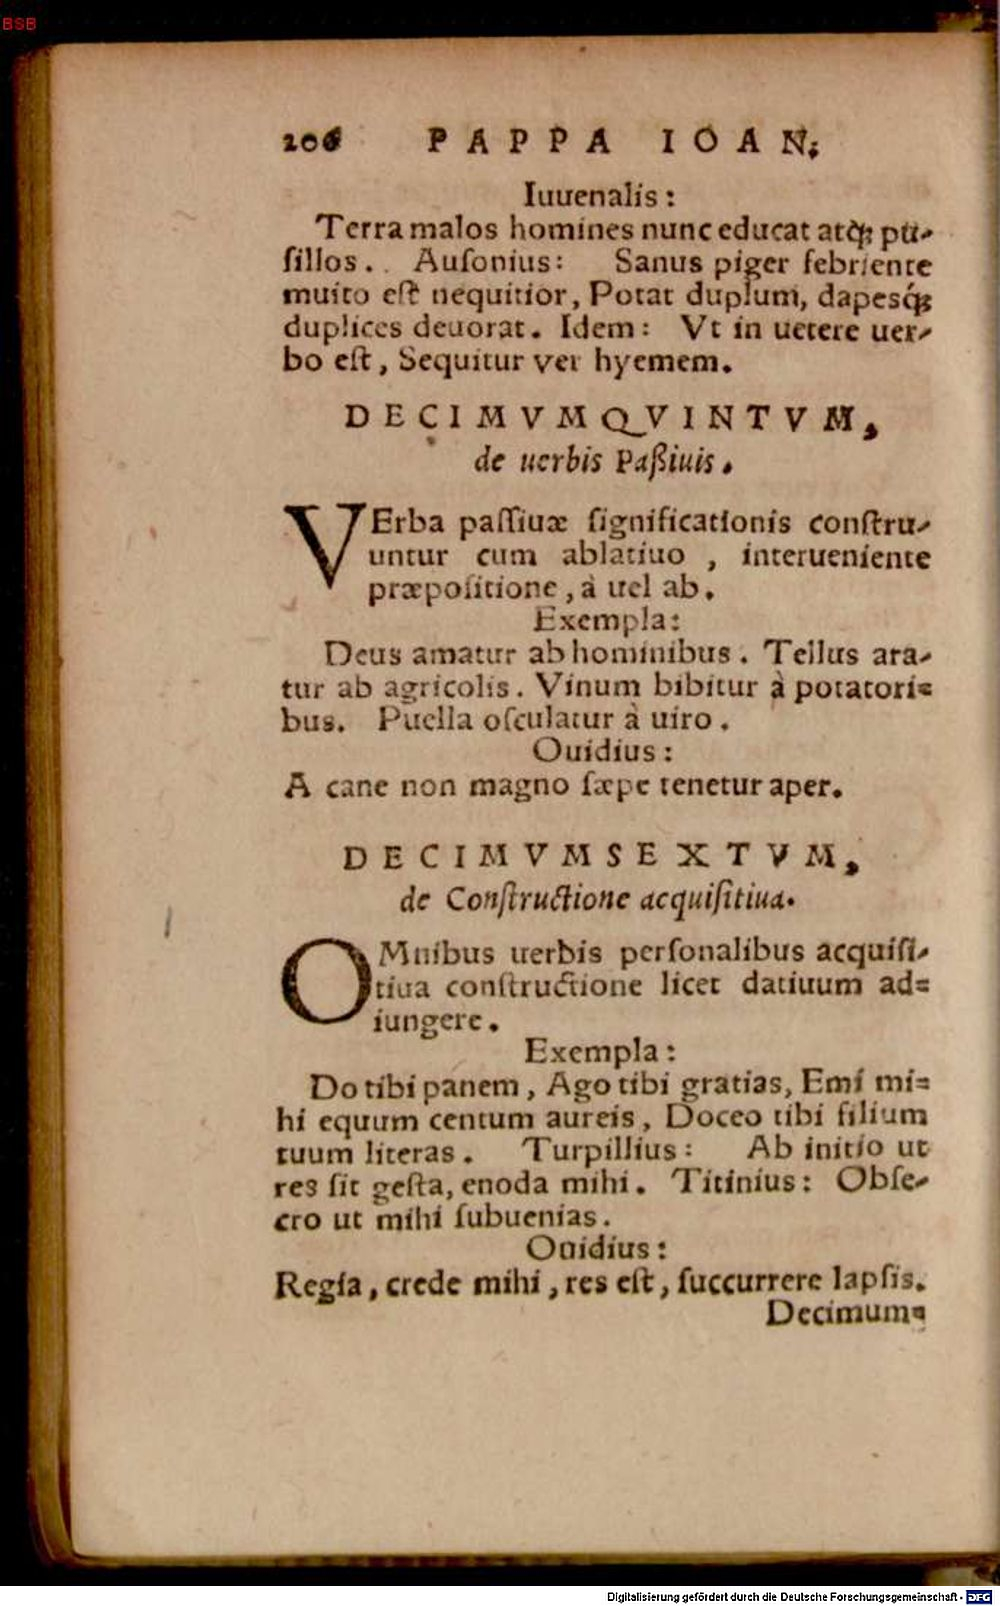 BSB
206 PAPPA IOAN.
Iuuenalis:
Terra malos homines nunc educat atq́ꝫ pu-
sillos. Ausonius: Sanus piger febriente
multo est nequitior, Potat duplum, dapesq́ꝫ
duplices deuorat. Idem: Vt in uetere uer-
bo est, Sequitur ver hyemem.
DECIMVMQVINTVM,
de uerbis Paßiuis.
VErba passiuæ significationis constru-
untur cum ablatiuo, interueniente
præpositione, à uel ab.
Exempla:
Deus amatur ab hominibus. Tellus ara-
tur ab agricolis. Vinum bibitur à potatori=
bus. Puella osculatur à uiro.
Ouidius:
A cane non magno sæpe tenetur aper.
DECIMVMSEXTVM,
de Constructione acquisitiua.
OMnibus uerbis personalibus acquisi-
tiua constructione licet datiuum ad=
iungere.
Exempla:
Do tibi panem, Ago tibi gratias, Emi mi=
hi equum centum aureis, Doceo tibi filium
tuum literas. Turpillius: Ab initio ut
res sit gesta, enoda mihi. Titinius: Obse-
cro ut mihi subuenias.
Ouidius:
Regia, crede mihi, res est, succurrere lapsis.
Decimum=
Digitalisierung gefördert durch die Deutsche Forschungsgemeinschaft - DFG